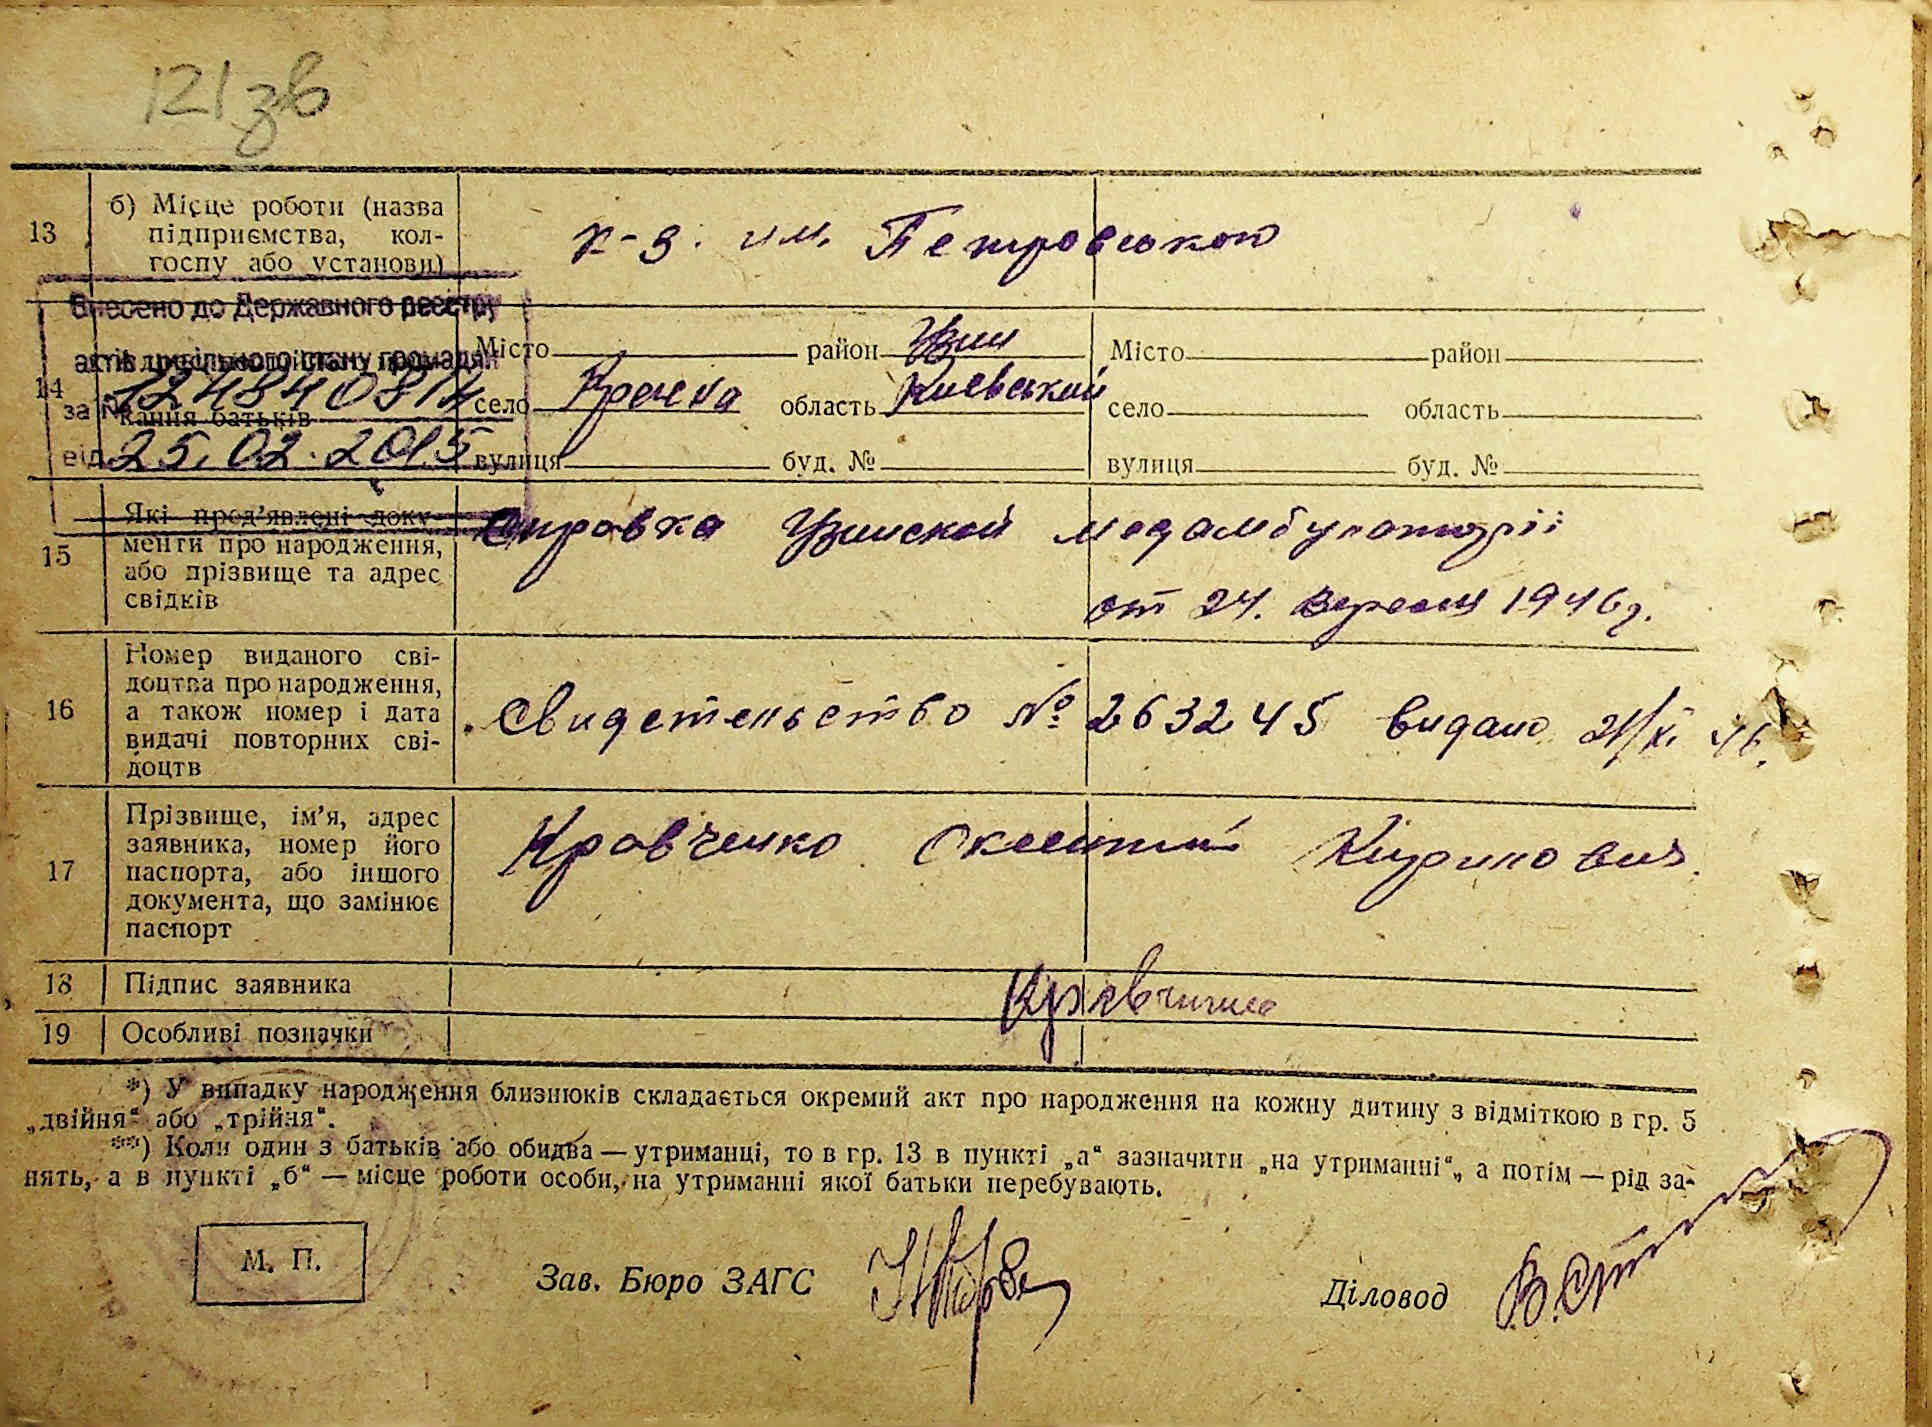 121 зв
13 б) Місце роботи (назва
підприємства, кол-
госпу або установи)
к-з. им. Петровського
Внесено до Державного реєстру
актів цивільного стану громадян
за №
від 25.02.2015
14
кання батьків
Місто район Узин Місто район
село область Киевський село область
вулиця буд. № вулиця буд. №
15 Які пред’явлені доку-
менти про народження,
або прізвище та адрес
свідків
Справка Узинской медамбулаторії
от 24. вересня 1946 г.
16 Номер виданого сві-
доцтва про народження,
а також номер і дата
видачі повторних сві-
доцтв
Свидетельство № 263245 видано
17 Прізвище, ім’я, адрес
заявника, номер його
паспорта, або іншого
документа, що замінює
паспорт
Кравченко Кирилович.
18 Підпис заявника
19 Особливі позначки
*) У випадку народження близнюків складається окремий акт про народження на кожну дитину з відміткою в гр. 5
„двійня“ або „трійня“.
**) Коли один з батьків або обидва — утриманці, то в гр. 13 в пункті „а“ зазначити „на утриманні“, а потім — рід за-
нять, а в пункті „б“ — місце роботи особи, на утриманні якої батьки перебувають.
М. П.
Зав. Бюро ЗАГС
Діловод